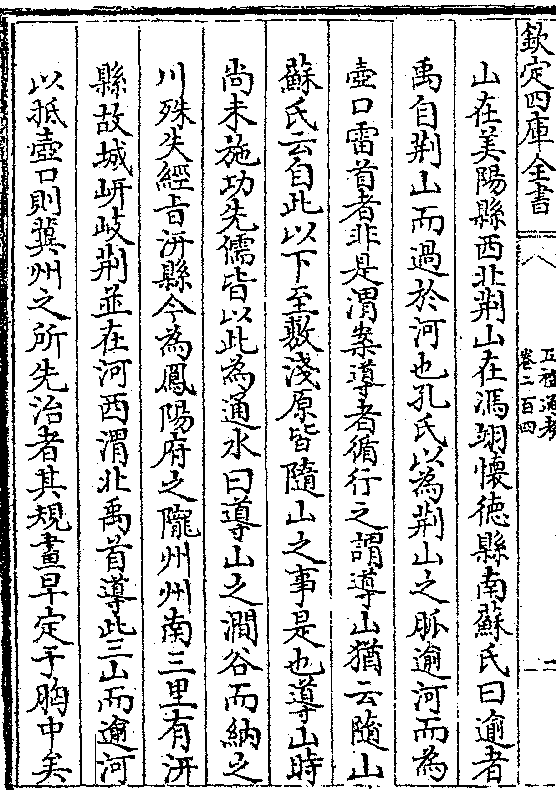 欽定四庫全書
五禮通考
卷二百四
二
山在美陽縣西北荆山在馮翊懷德縣南蘇氏曰逾者
禹自荆山而過於河也孔氏以為荆山之脈逾河而為
壺口雷首者非是渭案導者循行之謂導山猶云隨山
蘇氏云自此以下至敷淺原皆隨山之事是也導山時
尚未施功先儒皆以此為通水曰導山之澗谷而納之
川殊失經旨汧縣今為鳳陽府之隴州州南三里有汧
縣故城岍岐荆並在河西渭北禹首導此三山而逾河
以抵壺口則冀州之所先治者其規畫早定于胸中矣